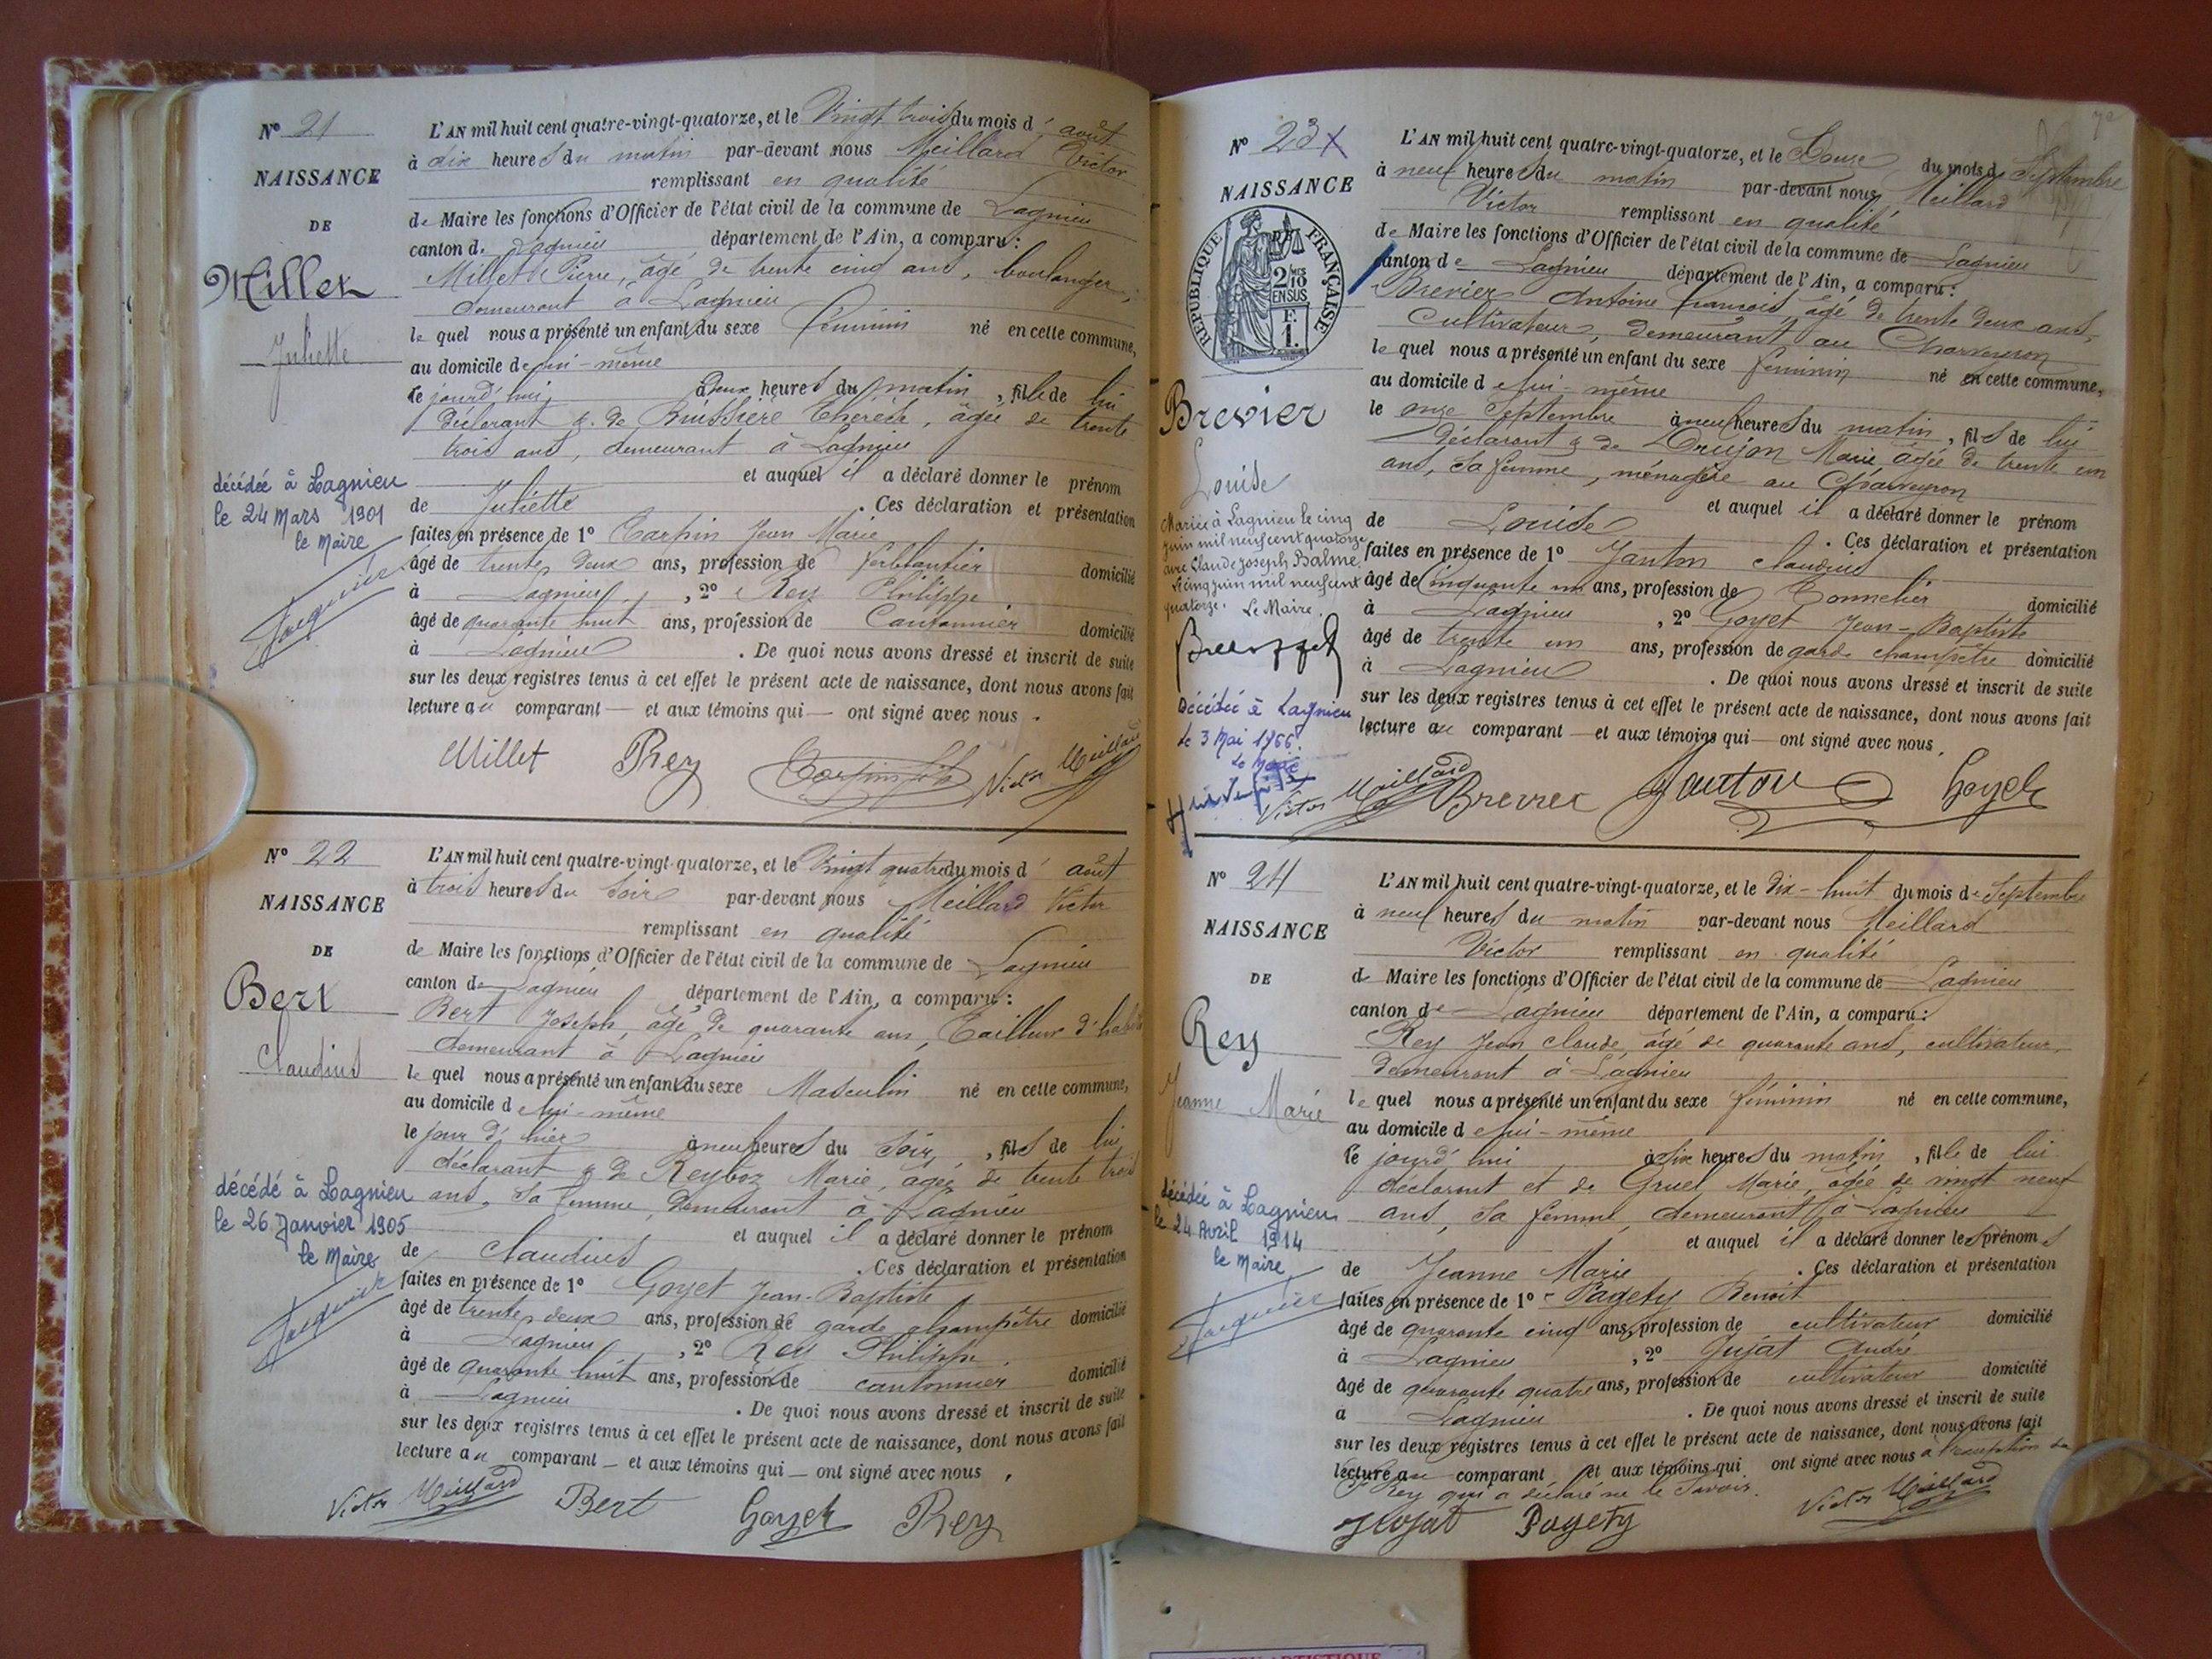 N° 21
NAISSANCE
DE
Millet
Juliette
décédée à Lagnieu
le 24 Mars 1901
le Maire
L'AN mil huit cent quatre-vingt-quatorze, et le Vingt trois du mois d'août
à dix heures du matin par-devant nous Meillard Victor
remplissant en qualité
de Maire les fonctions d'Officier de l'état civil de la commune de Lagnieu
canton de Lagnieu département de l'Ain, a comparu :
Millet Pierre, âgé de trente cinq ans, boulanger,
demeurant à Lagnieu
le quel nous a présenté un enfant du sexe féminin né en cette commune,
au domicile de lui-même
le jourd'hui, à deux heures du matin, fille de lui
déclarant & de Buissière Thérèse, âgée de trente
trois ans, demeurant à Lagnieu
et auquel il a déclaré donner le prénom
de Juliette . Ces déclaration et présentation
faites en présence de 1° Carpin Jean Marie
âgé de trente deux ans, profession de ferblantier domicilié
à Lagnieu, 2° Rey Philippe
âgé de quarante huit ans, profession de Cantonnier domicilié
à Lagnieu . De quoi nous avons dressé et inscrit de suite
sur les deux registres tenus à cet effet le présent acte de naissance, dont nous avons fait
lecture au comparant — et aux témoins qui — ont signé avec nous .
Millet Rey Carpin Victor Meillard
N° 22
NAISSANCE
DE
Bert
Claudius
décédé à Lagnieu
le 26 Janvier 1905
le Maire
L'AN mil huit cent quatre-vingt-quatorze, et le Vingt quatre du mois d'août
à trois heures du soir par-devant nous Meillard Victor
remplissant en qualité
de Maire les fonctions d'Officier de l'état civil de la commune de Lagnieu
canton de Lagnieu département de l'Ain, a comparu :
Bert Joseph, âgé de quarante ans, Tailleur d'habits
demeurant à Lagnieu
le quel nous a présenté un enfant du sexe Masculin né en cette commune,
au domicile de lui-même
le jour d'hier à neuf heures du soir, fils de lui
déclarant & de Reyboz Marie, âgée de trente trois
ans, sa femme, demeurant à Lagnieu
et auquel il a déclaré donner le prénom
de Claudius . Ces déclaration et présentation
faites en présence de 1° Goyet Jean-Baptiste
âgé de trente deux ans, profession de garde champêtre domicilié
à Lagnieu, 2° Rey Philippe
âgé de quarante huit ans, profession de cantonnier domicilié
à Lagnieu . De quoi nous avons dressé et inscrit de suite
sur les deux registres tenus à cet effet le présent acte de naissance, dont nous avons fait
lecture au comparant — et aux témoins qui — ont signé avec nous .
Victor Meillard Bert Goyet Rey
N° 23 X
NAISSANCE
RÉPUBLIQUE FRANÇAISE
2/10 EN SUS
F. 1.
Brevier
Louise
Mariée à Lagnieu le cinq
juin mil neuf cent quatorze
avec Claude Joseph Balme.
le cinq juin mil neuf cent
quatorze. Le Maire.
Décédée à Lagnieu
le 3 Mai 1966.
Le Maire
L'AN mil huit cent quatre-vingt-quatorze, et le Douze du mois de Septembre
à neuf heures du matin par-devant nous Meillard
Victor remplissant en qualité
de Maire les fonctions d'Officier de l'état civil de la commune de Lagnieu
canton de Lagnieu département de l'Ain, a comparu :
Brevier Antoine François, âgé de trente deux ans,
Cultivateur, demeurant au Charveyron
le quel nous a présenté un enfant du sexe féminin né en cette commune,
au domicile de lui-même
le onze Septembre à neuf heures du matin, fils de lui
déclarant & de Drujon Marie âgée de trente un
ans, sa femme, ménagère au Charveyron
et auquel il a déclaré donner le prénom
de Louise . Ces déclaration et présentation
faites en présence de 1° Janton Claudius
âgé de Cinquante un ans, profession de Tonnelier domicilié
à Lagnieu, 2° Goyet Jean-Baptiste
âgé de trente un ans, profession de garde champêtre domicilié
à Lagnieu . De quoi nous avons dressé et inscrit de suite
sur les deux registres tenus à cet effet le présent acte de naissance, dont nous avons fait
lecture au comparant — et aux témoins qui — ont signé avec nous .
Victor Meillard Brevier Janton Goyet
N° 24
NAISSANCE
DE
Rey
Jeanne Marie
décédée à Lagnieu
le 24 Avril 1914
le Maire
L'AN mil huit cent quatre-vingt-quatorze, et le dix-huit du mois de Septembre
à neuf heures du matin par-devant nous Meillard
Victor remplissant en qualité
de Maire les fonctions d'Officier de l'état civil de la commune de Lagnieu
canton de Lagnieu département de l'Ain, a comparu :
Rey Jean Claude, âgé de quarante ans, cultivateur,
demeurant à Lagnieu
le quel nous a présenté un enfant du sexe féminin né en cette commune,
au domicile de lui-même
le jourd'hui à six heures du matin, fille de lui
déclarant et de Gruel Marie, âgée de vingt neuf
ans, sa femme, demeurant à Lagnieu
et auquel il a déclaré donner les prénoms
de Jeanne Marie . Ces déclaration et présentation
faites en présence de 1° Pagety Benoit
âgé de quarante cinq ans, profession de cultivateur domicilié
à Lagnieu, 2° Jujat André
âgé de quarante quatre ans, profession de cultivateur domicilié
à Lagnieu . De quoi nous avons dressé et inscrit de suite
sur les deux registres tenus à cet effet le présent acte de naissance, dont nous avons fait
lecture au comparant et aux témoins qui ont signé avec nous à l'exception de
Rey qui a déclaré ne le savoir.
Jujat Pagety Victor Meillard